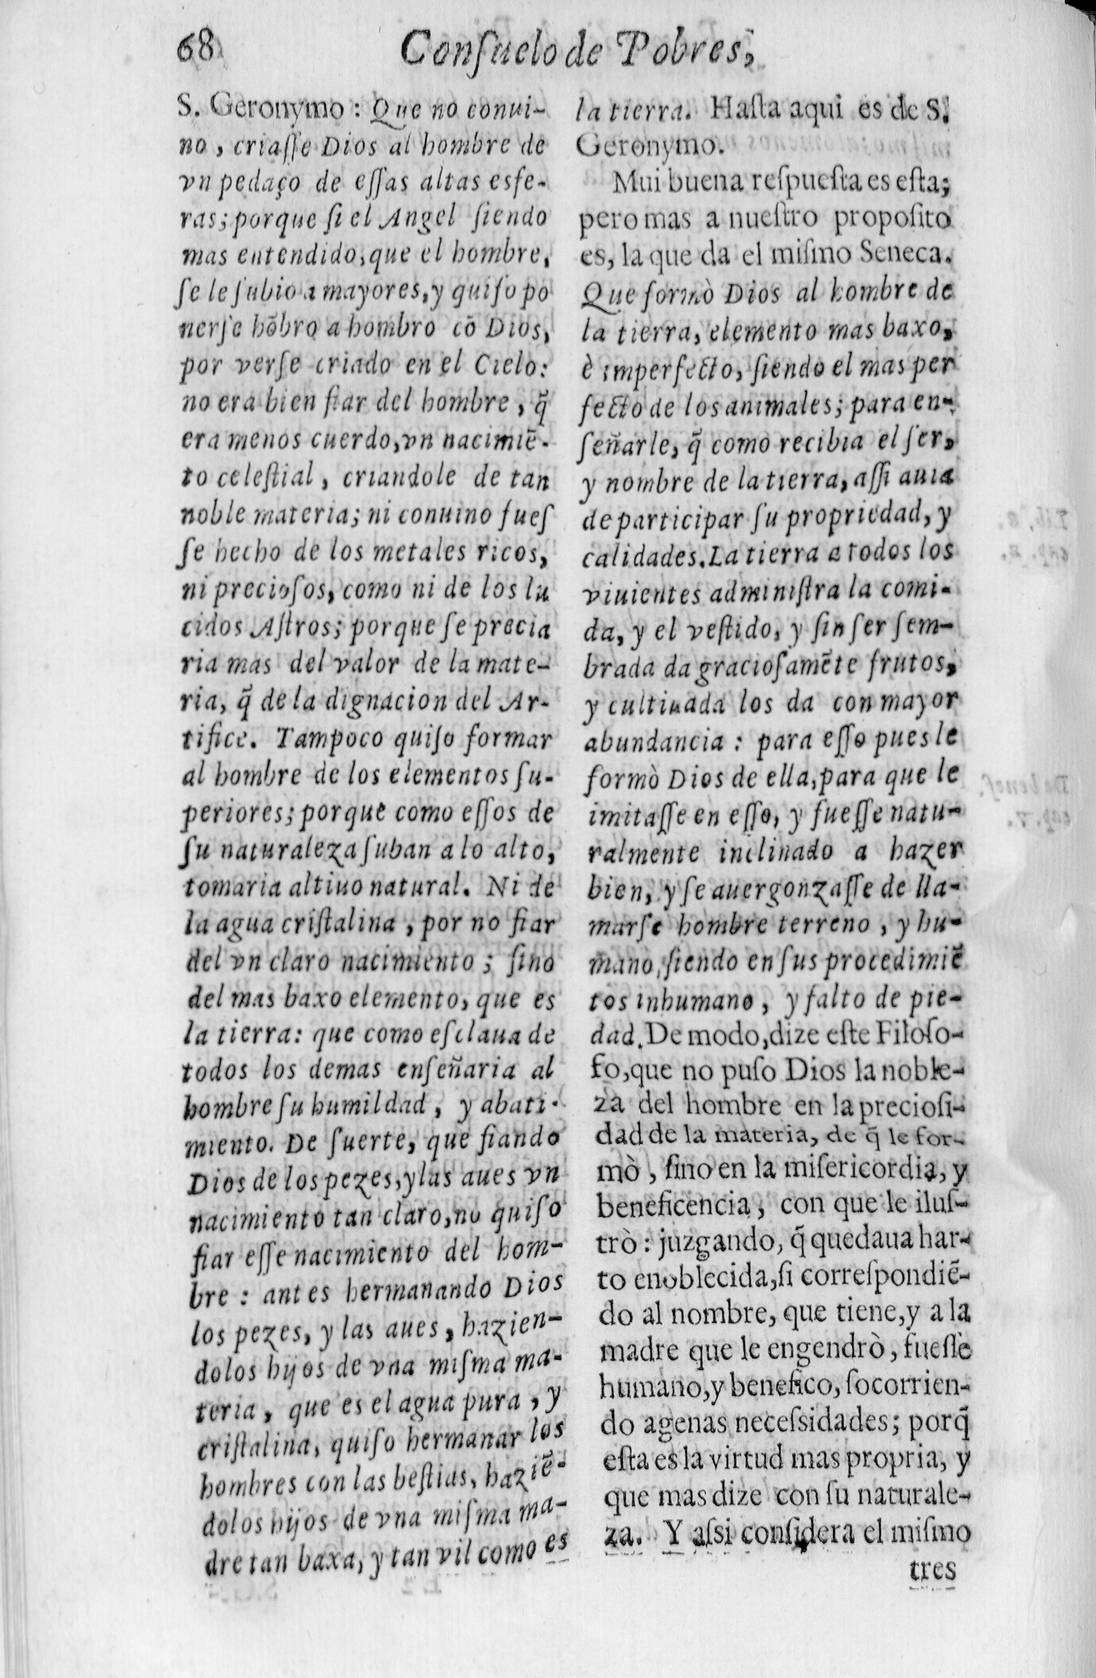 68
Conſuelo de Pobres,
S. Geronymo: Que no conui-
no, criaſſe Dios al hombre de
vn pedaço de eſſas altas esfe-
ras; porque ſi el Angel ſiendo
mas entendido, que el hombre,
ſe le ſubio a mayores, y quiſo po
nerſe hõbro a hombro cõ Dios,
por verſe criado en el Cielo:
no era bien fiar del hombre, q̃
era menos cuerdo, vn nacimiẽ-
to celeſtial, criandole de tan
noble materia; ni conuino fueſ
ſe hecho de los metales ricos,
ni precioſos, como ni de los lu
cidos Aſtros; porque ſe precia
ria mas del valor de la mate-
ria, q̃ de la dignacion del Ar-
tifice. Tampoco quiſo formar
al hombre de los elementos ſu-
periores; porque como eſſos de
ſu naturaleza ſuban a lo alto,
tomaria altiuo natural. Ni de
la agua criſtalina, por no fiar
del vn claro nacimiento; ſino
del mas baxo elemento, que es
la tierra: que como eſclaua de
todos los demas enſeñaria al
hombre ſu humildad, y abati-
miento. De ſuerte, que fiando
Dios de los pezes, y las aues vn
nacimiento tan claro, no quiſo
fiar eſſe nacimiento del hom-
bre: antes hermanando Dios
los pezes, y las aues, hazien-
dolos hijos de vna miſma ma-
teria, que es el agua pura, y
criſtalina, quiſo hermanar los
hombres con las beſtias, haziẽ-
dolos hijos de vna miſma ma-
dre tan baxa, y tan vil como es
la tierra. Haſta aqui es de S.
Geronymo.
Mui buena reſpueſta es eſta;
pero mas a nueſtro propoſito
es, la que da el miſmo Seneca.
Que formò Dios al hombre de
la tierra, elemento mas baxo,
è imperfecto, ſiendo el mas per
fecto de los animales; para en-
ſeñarle, q̃ como recibia el ſer,
y nombre de la tierra, aſſi auia
de participar ſu propriedad, y
calidades. La tierra a todos los
viuientes adminiſtra la comi-
da, y el veſtido, y ſin ſer ſem-
brada da gracioſamẽte frutos,
y cultiuada los da con mayor
abundancia: para eſſo pues le
formò Dios de ella, para que le
imitaſſe en eſſo, y fueſſe natu-
ralmente inclinado a hazer
bien, y ſe auergonzaſſe de lla-
marſe hombre terreno, y hu-
mano, ſiendo en ſus procedimiẽ
tos inhumano, y falto de pie-
dad. De modo, dize eſte Filoſo-
fo, que no puſo Dios la noble-
za del hombre en la precioſi-
dad de la materia, de q̃ le for-
mò, ſino en la miſericordia, y
beneficencia, con que le iluſ-
trò: juzgando, q̃ quedaua har-
to enoblecida, ſi correſpondiẽ-
do al nombre, que tiene, y a la
madre que le engendrò, fueſſe
humano, y benefico, ſocorrien-
do agenas neceſsidades; porq̃
eſta es la virtud mas propria, y
que mas dize con ſu naturale-
za. Y aſsi conſidera el miſmo
tres